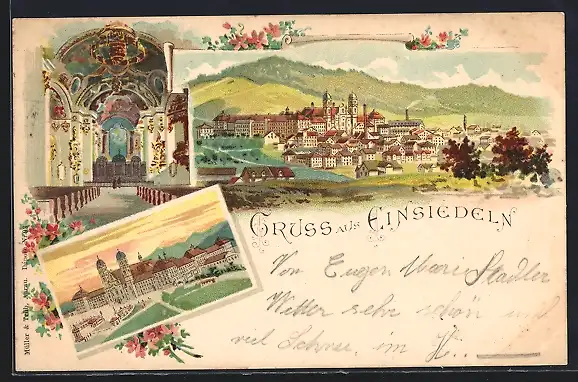 GRUSS AUS EINSIEDELN
Von Eugen Marie Stadler
Wetter sehr schön und
viel Schnee, im H...
Müller & Trüb, Aarau.